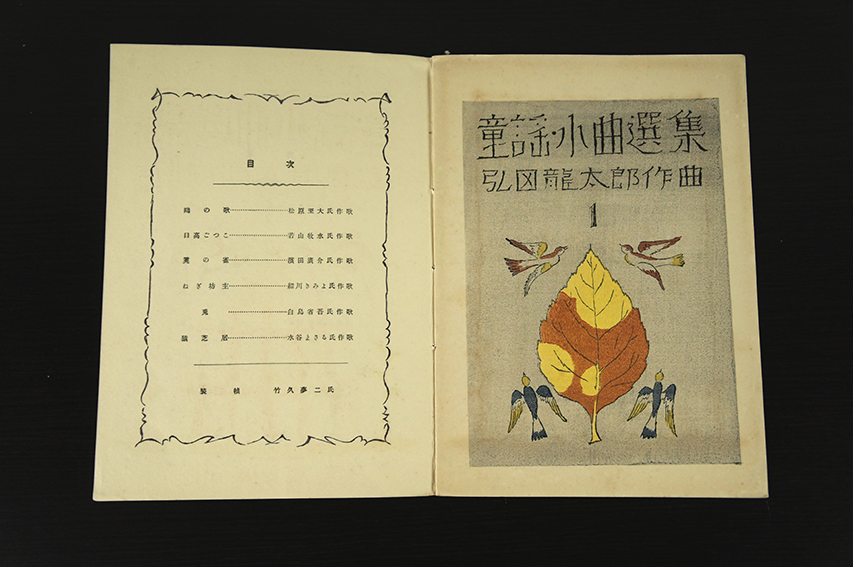 目次
の歌………………松原至大氏作歌
目高ごつこ………………若山牧水氏作歌
の雀………………濱田廣介氏作歌
ねぎ坊主………………細川きみよ氏作歌
兎………………白鳥省吾氏作歌
芝居………………水谷まさる氏作歌
裝幀 竹久夢二氏
童謡・小曲選集
弘田龍太郎作曲
1